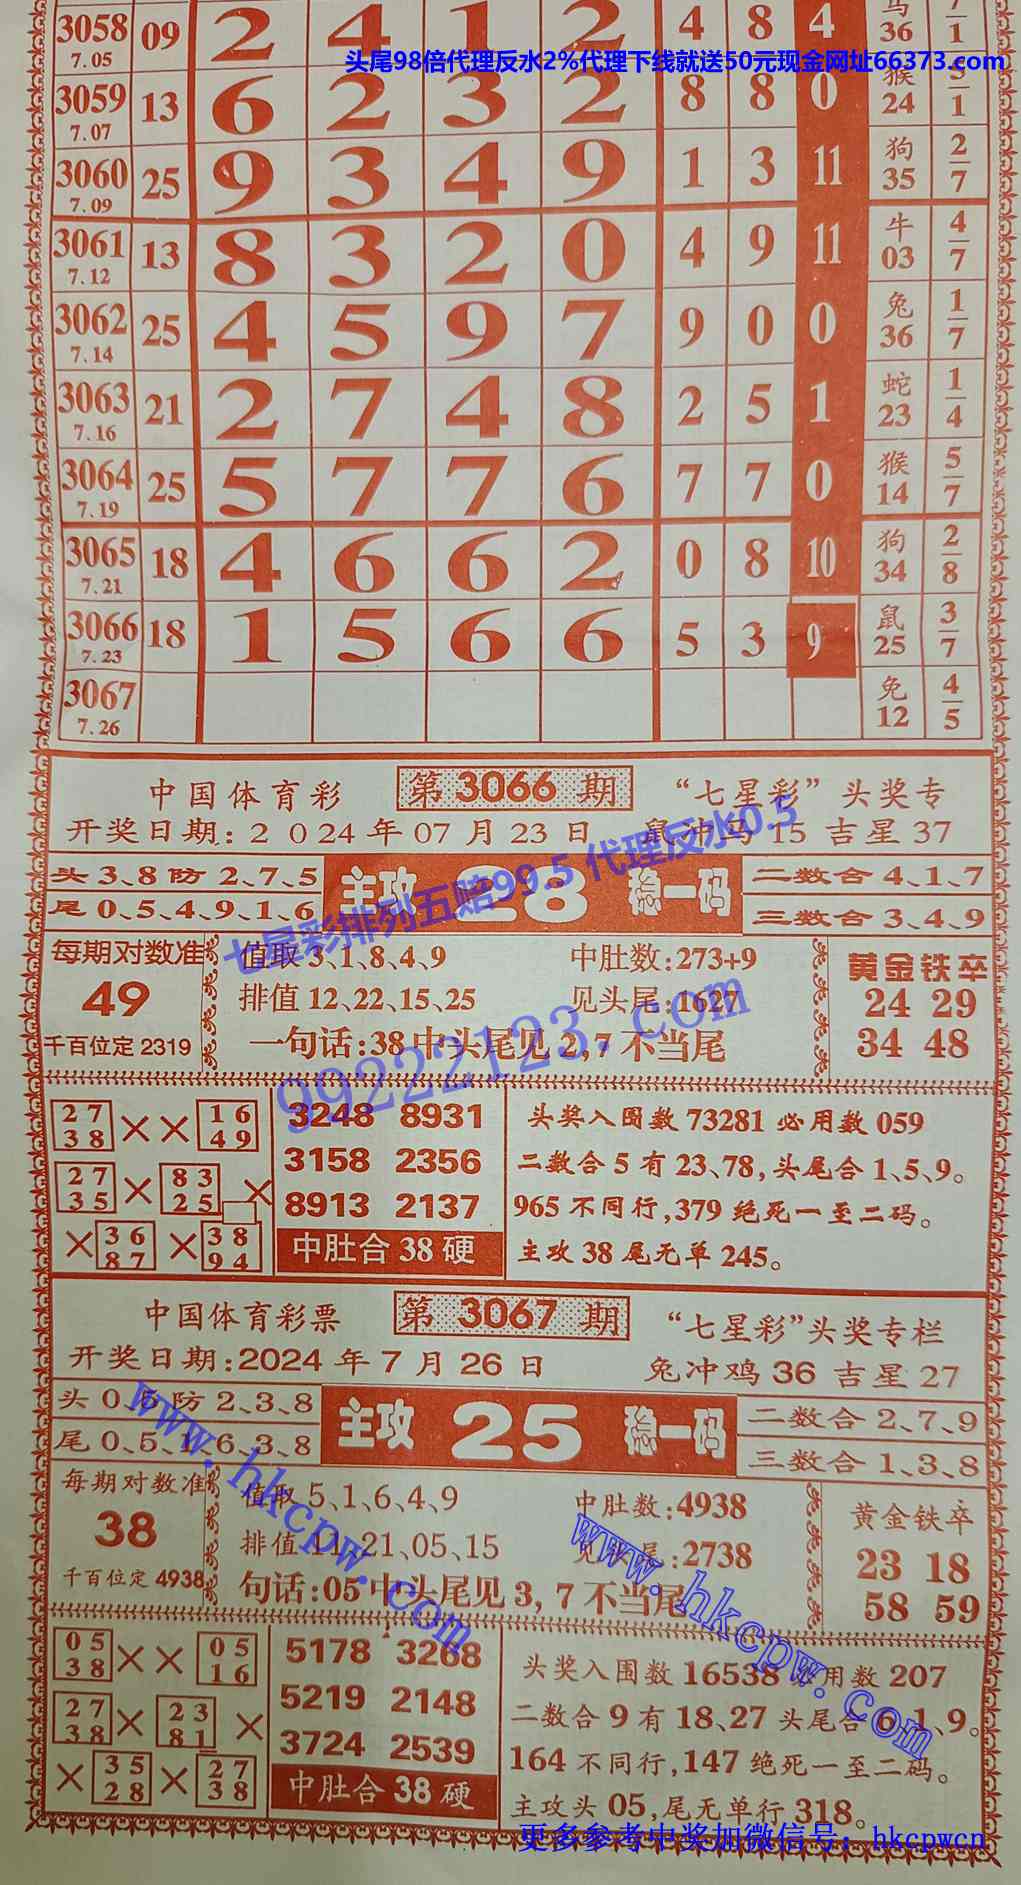 3058 09 2 4 1 2 4 8 4 马 7
7.05 36 1
头尾98倍代理反水2%代理下线就送50元现金网址66373.com
3059 13 6 2 3 2 8 8 0 猴 5
7.07 24 1
3060 25 9 3 4 9 1 3 11 狗 2
7.09 35 7
3061 13 8 3 2 0 4 9 11 牛 4
7.12 03 7
3062 25 4 5 9 7 9 0 0 兔 1
7.14 36 7
3063 21 2 7 4 8 2 5 1 蛇 1
7.16 23 4
3064 25 5 7 7 6 7 7 0 猴 5
7.19 14 7
3065 18 4 6 6 2 0 8 10 狗 2
7.21 34 8
3066 18 1 5 6 6 5 3 9 鼠 3
7.23 25 7
3067 兔 4
7.26 12 5
中国体育彩 第3066期 “七星彩”头奖专
开奖日期:2024年07月23日 鼠冲马15吉星37
头3、8防2、7、5 主攻 28 稳一码 二数合4、1、7
尾0、5、4、9、1、6 三数合3、4、9
七星彩排列五赔99.5 代理反水0.5
每期对数准 值取3、1、8、4、9 中肚数:273+9 黄金铁卒
49 排值12、22、15、25 见头尾:1627 24 29
千百位定2319 一句话:38中头尾见2,7不当尾 34 48
99222123.com
27 ×× 16 3248 8931 头奖入围数73281必用数059
38 49
27 × 83 × 3158 2356 二数合5有23、78,头尾合1、5、9。
35 25 8913 2137 965不同行,379绝死一至二码。
×36 ×38 中肚合38硬 主攻38尾无单245。
87 94
中国体育彩票 第3067期 “七星彩”头奖专栏
开奖日期:2024年7月26日 兔冲鸡36吉星27
头0、5防2、3、8 主攻 25 稳一码 二数合2、7、9
尾0、5、1、6、3、8 三数合1、3、8
www.hkcpw.com
每期对数准 值取5、1、6、4、9 中肚数:4938 黄金铁卒
38 排值11、21、05、15 见头尾:2738 23 18
千百位定4938 句话:05中头尾见3,7不当尾 58 59
www.hkcpw.com
05 ×× 05 5178 3268 头奖入围数16538必用数207
38 16
27 × 23 × 5219 2148 二数合9有18、27头尾合6、1、9。
38 81 3724 2539 164不同行,147绝死一至二码。
×35 ×27 中肚合38硬 主攻头05,尾无单行318。
28 38
更多参考中奖加微信号：hkcpwcn